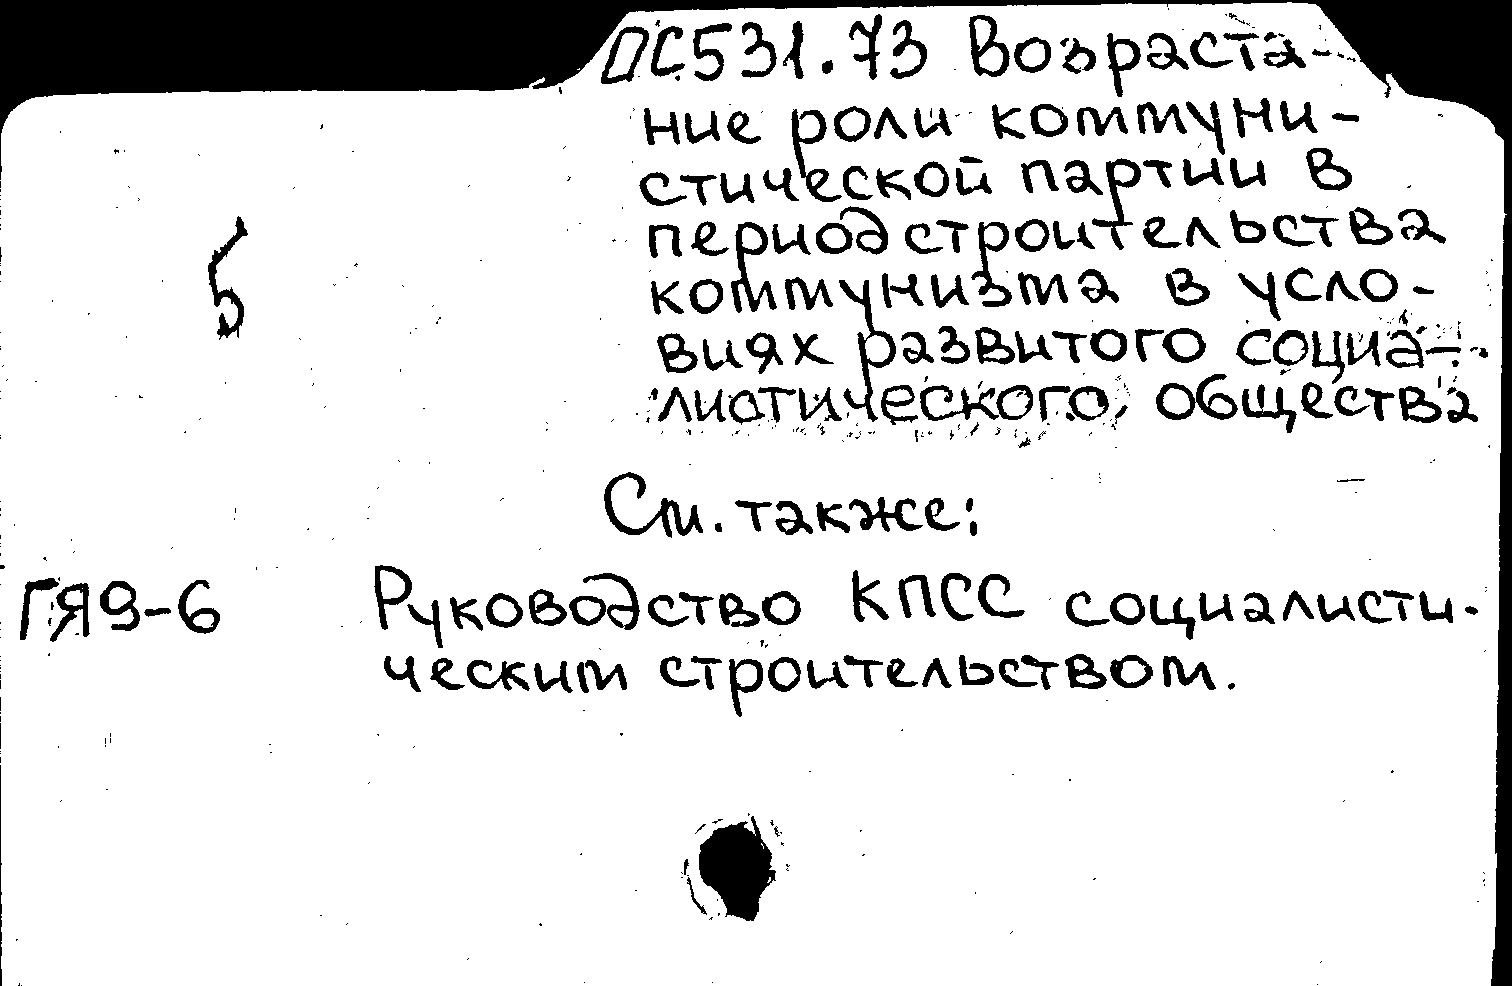 ПС531.73 Возраста-
ние роли коммуни-
стической партии в
период строительства
коммунизма в усло-
виях развитого социа-
листического общества
5
См. также:
ГЯ9-6 Руководство КПСС социалисти-
ческим строительством.